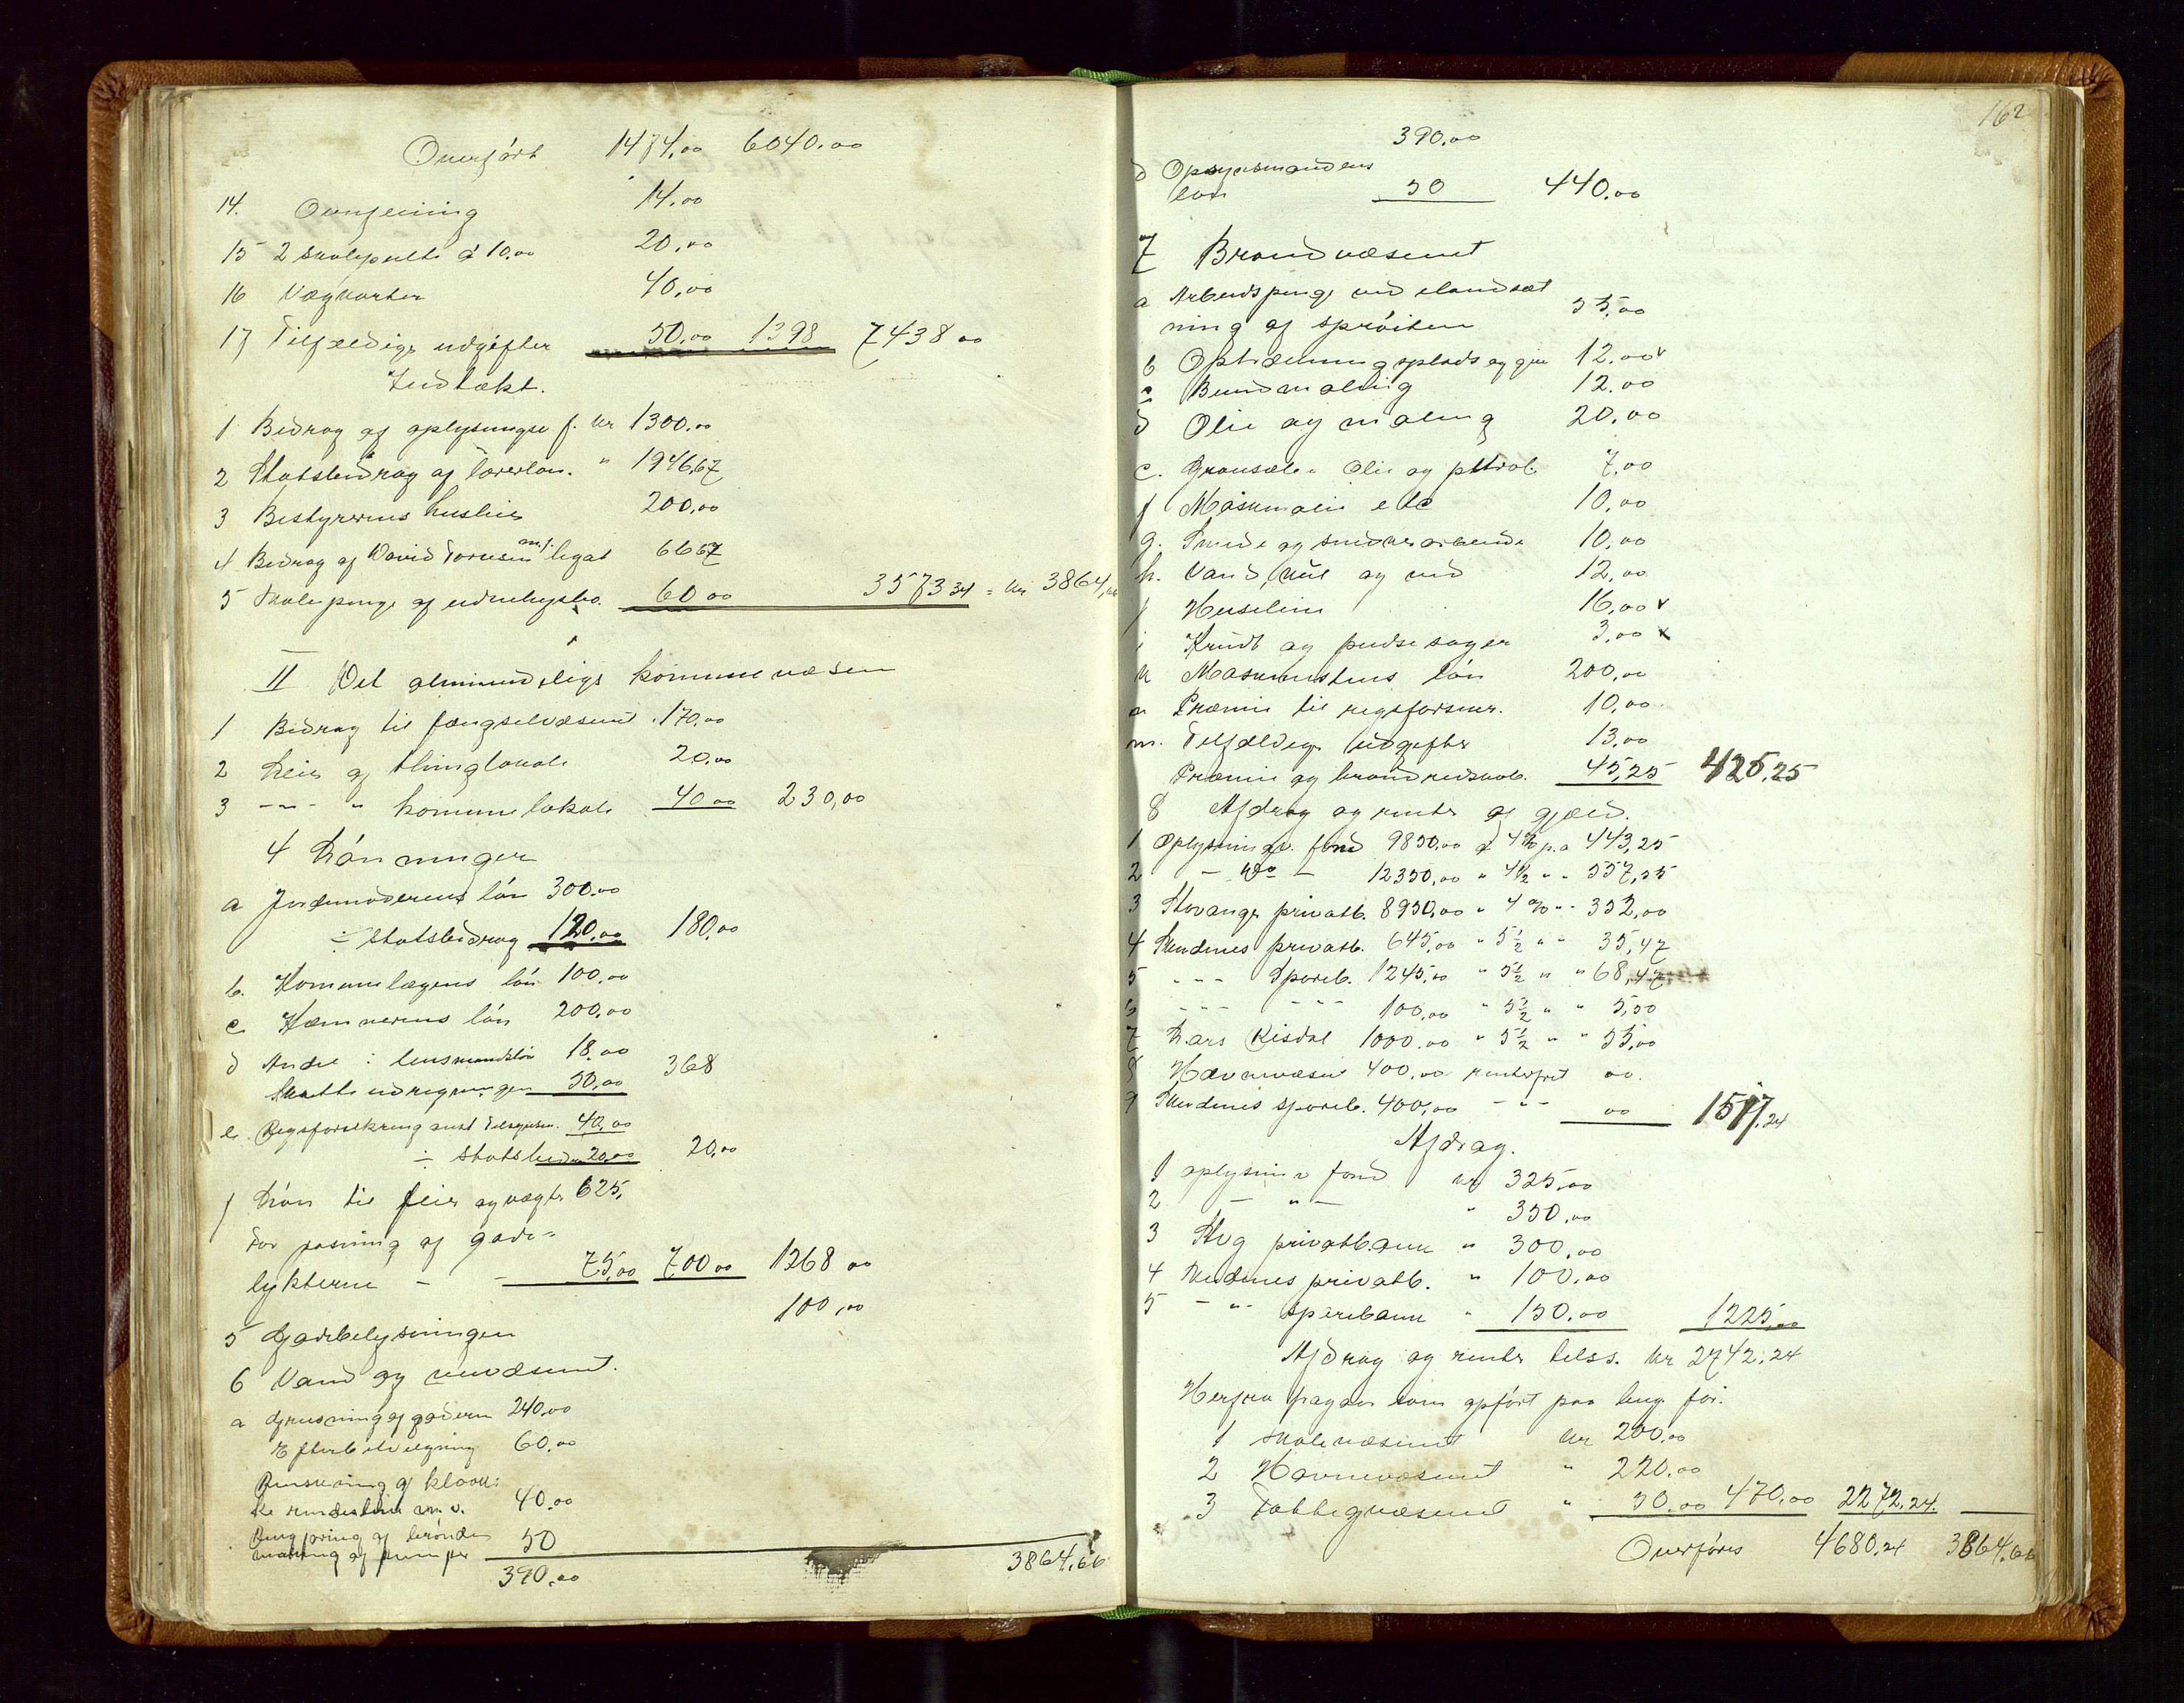 Overført 1474,00 6040,00
14. Ovnfeining 14,00
15 2 skolepulte à 10,00 20,00
16 Vægkarter 40,00
17 Tilfældige udgifter 50,00 1398 7438 00
Indtækt.
1 Bidrag af oplysningsf. kr 1300,00
2 Statsbidrag af lærerløn. " 1946,67
3 Bestyrerens husleie 200,00
4 Bidrag af David m.f. legat 66 67
5 Skolepenge af udenbysbo. 60 00 3573 34 = kr 3864,66
II Det almindelige kommunevæsen
1 Bidrag til fængselvæsenet 170,00
2 Leie af thinglokale 20,00
3 -"- " kommunelokale 40 00 230,00
4 Lønninger
a Jordmoderens løn 300,00
÷ statsbidrag 120,00 180,00
b. Kommunelægens løn 100,00
c Kæmnerens løn 200,00
d Andel i lensmandsløn 18,00
Skatteudregningen 50,00 368
e. Rigsforsikring 40,00
÷ statsbidrag 20,00 20,00
f Løn til feier og vægter 625,
For pasning af gade-
lykterne - - 75,00 700 00 1268 00
5 Gadebelysningen 100,00
6 Vand og veivæsenet.
a Grusning af gaderne 240,00
60,00
Rensning af kloak:
ke rendestene m.v. 40,00
Rengjøring af brønde
maling af pumper 50
390,00 3864,66
162
390,00
d Opsynsmandens
løn 50 440,00
7 Brandvæsenet
a Arbeidspenge ved istandsæt
ning af sprøiten 55,00
b 12.00 v
c Bundmaling 12.00
d Olie og maling 20,00
e. Grønsæbe olie og petrol. 7,00
f Maskinolie etc 10,00
g. Smede og snedkerarbeide 10,00
h. Vand, kul og ved 12,00
j Husleie 16,00 v
i Krudt og pudsesager 3,00 x
k Maskinistens løn 200,00
Præmie til rigsforsikr. 10,00
m. Tilfældige udgifter 13,00
Præmie af brandredskab. 45,25 425,25
8 Afdrag og renter af gjæld.
1 Oplysnings. fond 9850,00 à 4½ p.a 443,25
2 - do - 12350,00 " 4½ " " 557,55
3 Stavanger privatb. 8950,00 " 4 % " " 352,00
4 Skudenes privatb. 645,00 " 5½ " " 35,47
5 - " - Spareb. 1245,00 " 5½ " " 68,47
6 - " - - " - 100,00 " 5½ " " 5,50
7 Lars Risdal 1000.00 " 5½ " " 55,00
8 Havnevæsen 400,00 rentefrit 00.
9 Skudenes spareb. 400,00 - " - 00 1517,24
Afdrag.
1 oplysnin. fond kr 325,00
2 - " - " 350,00
3 Stvg privatbank " 300,00
4 Skudenes privatb. " 100,00
5 - " - sparebank " 150.00 1225,00
Afdrag og renter tilss. kr 2742,24
Herfra fragaar som opført paa hug for:
1 Skolevæsenet kr 200,00
2 Havnevæsenet " 220,00
3 Fattigvæsenet " 50.00 470,00 2272,24
Overføres 4680,24 3864,66